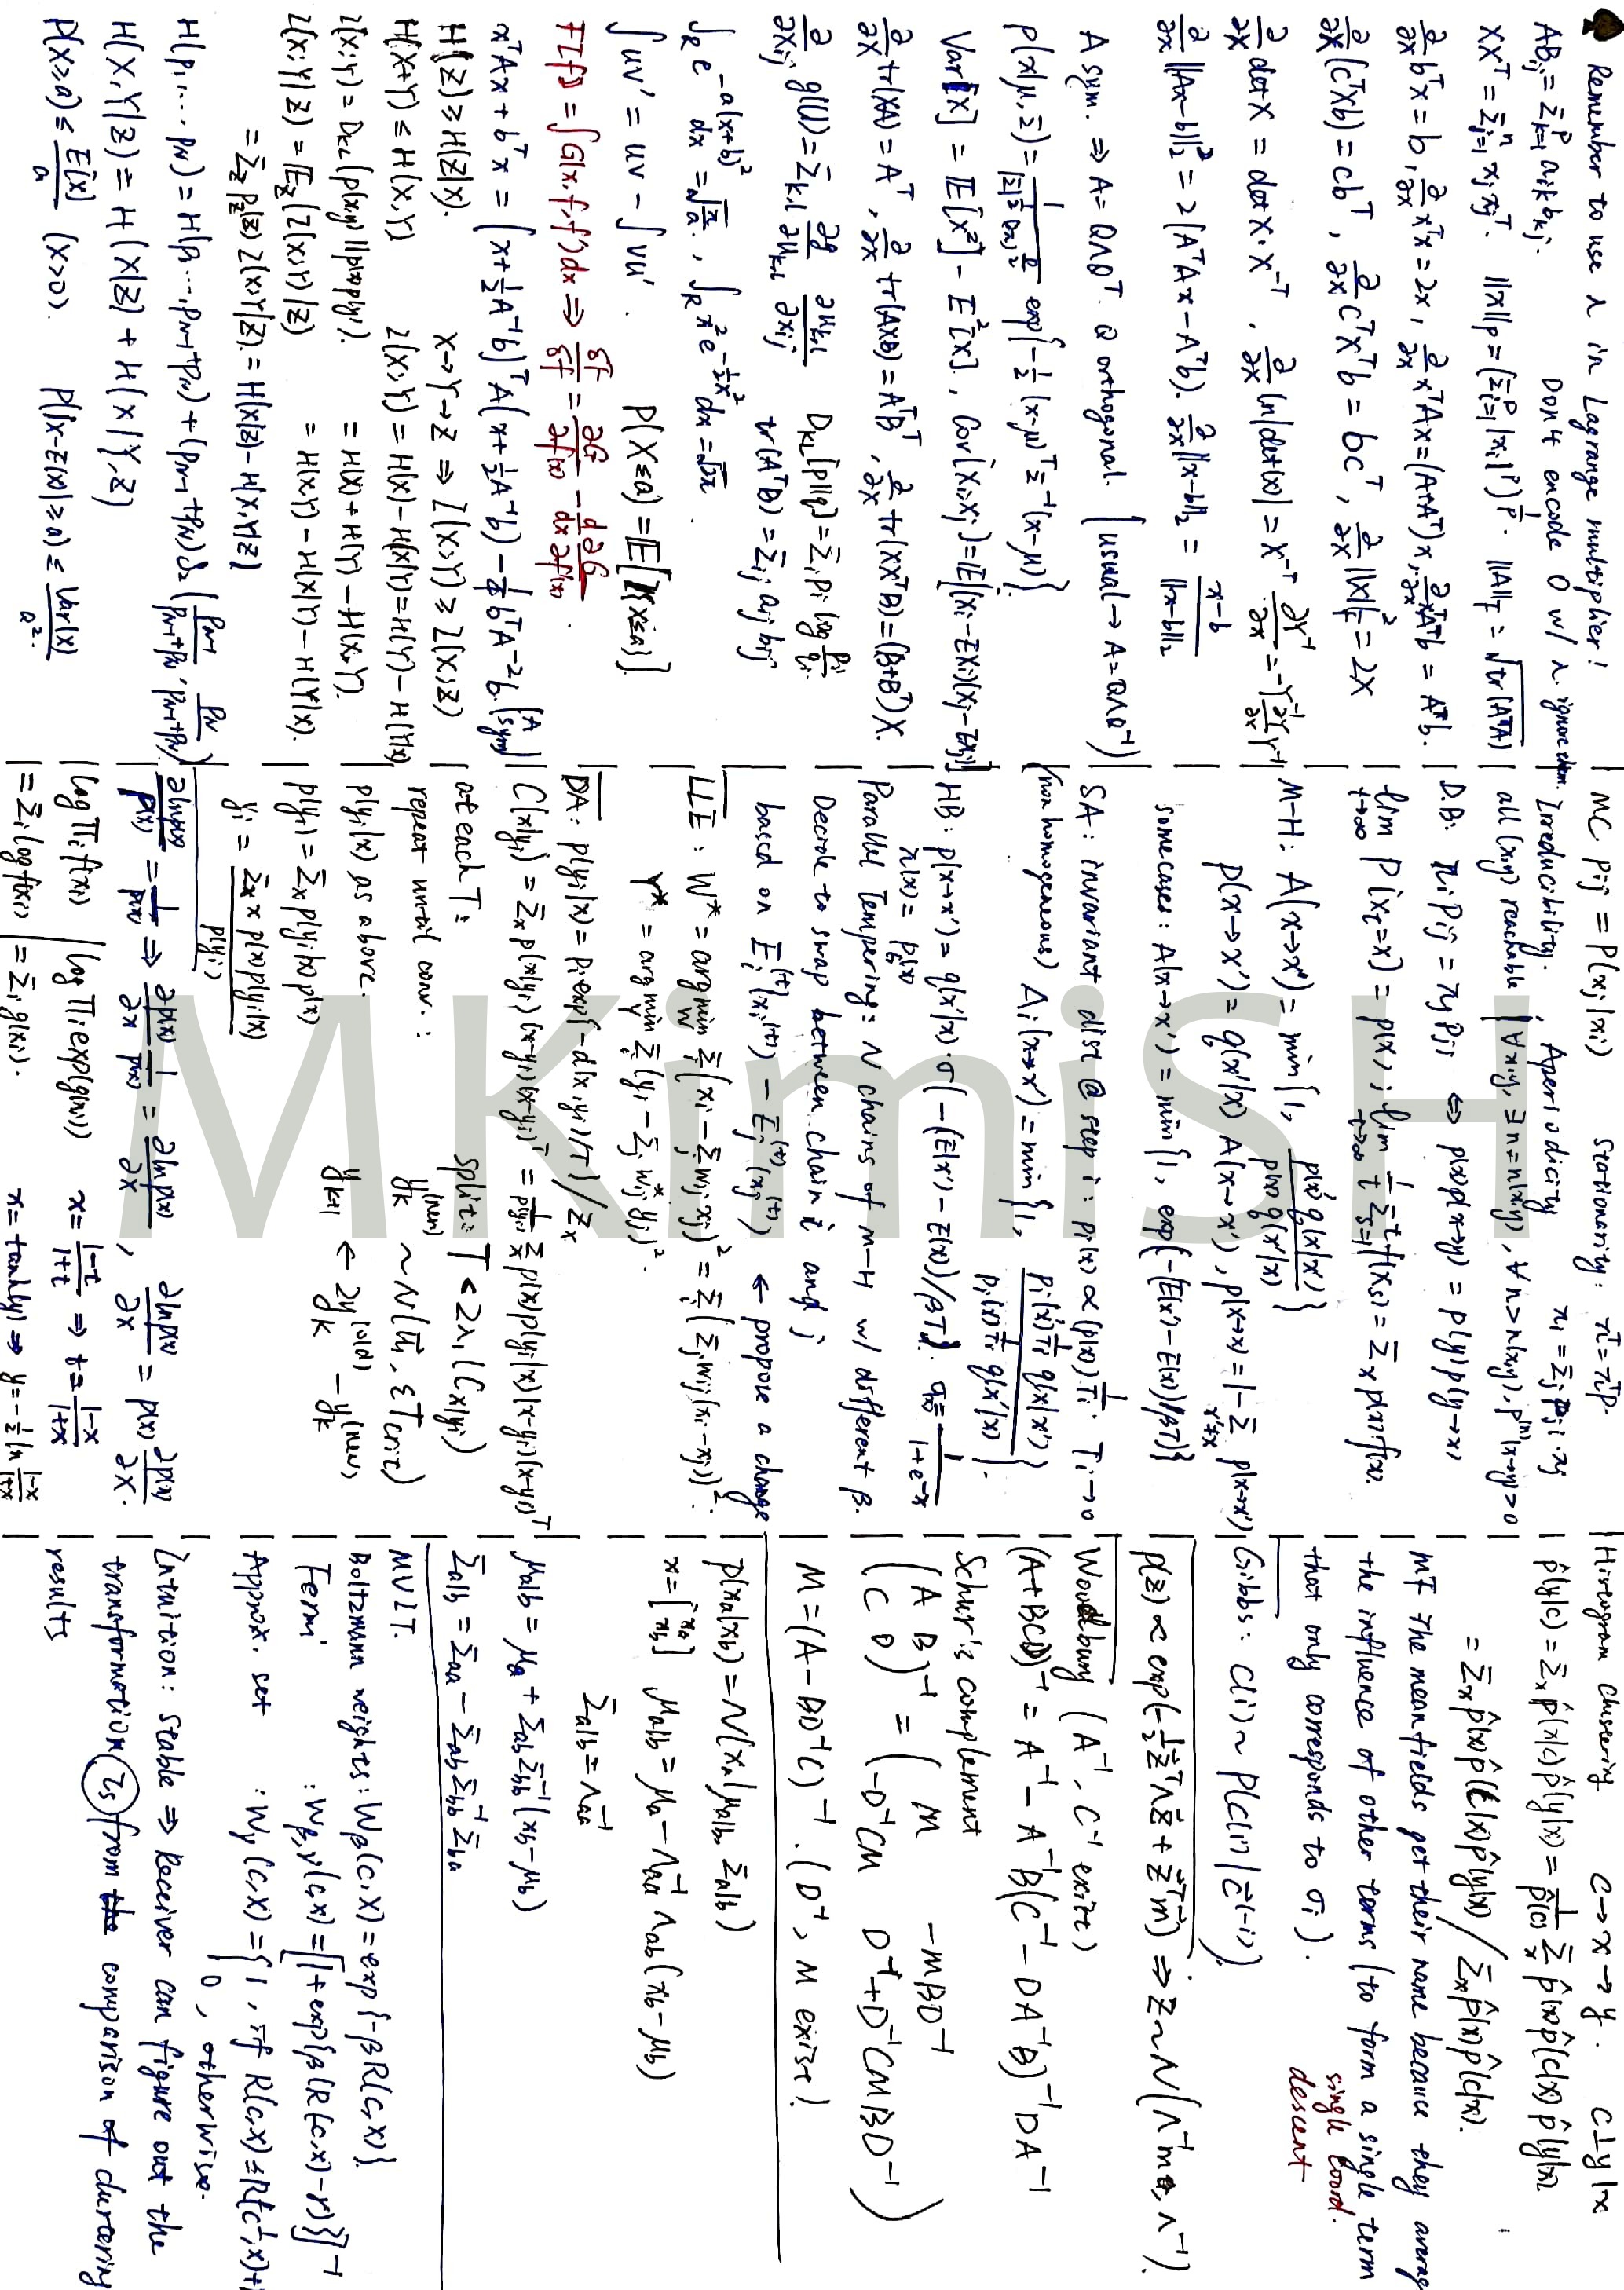 ♠ Remember to use λ in Lagrange multiplier!
AB_ij = Σ_{k=1}^p a_ik b_kj. Don't encode 0 w/ λ. ignore them.
XX^T = Σ_{j=1}^n x_j x_j^T. ||x||_p = (Σ_{i=1}^p |x_i|^p)^{1/p}. ||A||_F = √tr(A^TA)
∂/∂x b^Tx = b, ∂/∂x x^Tx = 2x, ∂/∂x x^TAx = (A+A^T)x, ∂/∂x x^TA^Tb = A^Tb.
∂/∂X (c^TXb) = cb^T, ∂/∂X c^TX^Tb = bc^T, ∂/∂X ||X||_F^2 = 2X
∂/∂X det X = det X · X^{-T}, ∂/∂X ln|det(X)| = X^{-T} ∂Y^{-1}/∂x = -Y^{-1} ∂Y/∂x Y^{-1}
∂/∂x ||Ax-b||_2^2 = 2(A^TAx - A^Tb). ∂/∂x ||x-b||_2 = (x-b)/||x-b||_2
A sym. ⇒ A = QΛQ^T. Q orthogonal. (usual → A = QΛQ^{-1})
p(x|μ,Σ) = 1/(|Σ|^{1/2} (2π)^{D/2}) exp{-1/2 (x-μ)^T Σ^{-1} (x-μ)}.
Var[X] = E[X^2] - E^2[X]., Cov[X_i,X_j] = E[(X_i-EX_i)(X_j-EX_j)]
∂/∂X tr(XA) = A^T, ∂/∂X tr(AXB) = A^TB^T, ∂/∂X tr(XX^TB) = (B+B^T)X.
∂/∂X_ij g(U) = Σ_{k,l} ∂g/∂u_{k,l} ∂u_{k,l}/∂x_ij D_KL[p||q] = Σ_i p_i log p_i/q_i.
tr(A^TB) = Σ_ij a_ij b_ij
∫_R e^{-a(x+b)^2} dx = √(π/a)., ∫_R x^2 e^{-1/2 x^2} dx = √2π.
∫uv' = uv - ∫vu'. P(X≤a) = E[1{X≤a}].
F[f] = ∫G(x,f,f')dx ⇒ δF/δf = ∂G/∂f(x) - d/dx ∂G/∂f'(x).
x^TAx + b^Tx = (x+1/2 A^{-1}b)^T A (x+1/2 A^{-1}b) - 1/4 b^TA^{-2}b. (A sym)
H(Z) ≥ H(Z|X). X→Y→Z ⇒ I(X;Y) ≥ I(X;Z)
H(X+Y) ≤ H(X,Y) I(X;Y) = H(X) - H(X|Y) = H(Y) - H(Y|X)
I(X;Y) = D_KL(p(x,y)||p(x)p(y)). = H(X)+H(Y)-H(X,Y).
I(X;Y|Z) = E_Z(I(X;Y)|Z) = H(X,Y)-H(X|Y)-H(Y|X).
= Σ_z p_z(z) I(X;Y|Z). = H(X|Z) - H(X,Y|Z)
H(p_1,...,p_N) = H(p_1...,p_{N-1}+p_N) + (p_{N-1}+p_N) S_2(p_{N-1}/(p_{N-1}+p_N), p_N/(p_{N-1}+p_N))
H(X,Y|Z) = H(X|Z) + H(X|Y,Z)
P(X≥a) ≤ E[X]/a (X>0). P(|X-E(X)|≥a) ≤ Var(X)/a^2.
MC p_ij = P(x_j|x_i) Stationarity: π^T = π^TP.
Irreducibility. , Aperiodicity π_i = Σ_j p_ji · π_j
all (x,y) reachable | ∀x,y, ∃n=n(x,y), ∀n>n(x,y), p^{(n)}(x→y)>0
D.B: π_i p_ij = π_j p_ji ⇔ p(x)p(x→y) = p(y)p(y→x)
lim_{t→∞} P[x_t=x] = p(x); lim_{t→∞} 1/t Σ_{s=1}^t f(x_s) = Σ_x p(x)f(x).
M-H: A(x→x') = min{1, p(x')q(x|x') / p(x)q(x'|x)}
p(x→x') = q(x'|x) A(x→x'), p(x→x) = 1-Σ_{x'≠x} p(x→x')
some cases: A(x→x') = min{1, exp(-(E(x')-E(x))/βT)}
SA: invariant dist @ step i: p_i(x) ∝ (p(x))^{1/T_i}. T_i→0
(non homogeneous) A_i(x→x') = min{1, p_i(x')^{1/T_i} q(x|x') / p_i(x)^{1/T_i} q(x'|x)}.
HB: p(x→x') = q(x'|x)·σ(-(E(x')-E(x))/βT). σ(x)= 1/(1+e^{-x})
π(x) = p_β(x)
Parallel Tempering: N chains of M-H w/ different β.
Decide to swap between chain i and j
based on E_i^{(t)}(x_i^{(t)}) - E_j^{(t)}(x_j^{(t)}) ← propose a change
LLE: W* = argmin_W Σ_i (x_i - Σ_j w_ij x_j)^2 = Σ_i (Σ_j w_ij (x_i-x_j))^2.
Y* = argmin_Y Σ_i (y_i - Σ_j w*_ij y_j)^2.
DA: p(y_i|x) = p_i exp{-d(x,y_i)/T} / Z_x
C(x|y_i) = Σ_x p(x|y_i)(x-y_i)(x-y_i)^T = 1/p(y_i) Σ_x p(x)p(y_i|x)(x-y_i)(x-y_i)^T
at each T: split: T < 2λ_1(C_{x|y_i})
repeat until conv.: y_k^{(new)} ~ N(u_1, εT_crit)
p(y_i|x) as above. y_{k+1} ← 2y_k^{(old)} - y_k^{(new)}
p(y_i) = Σ_x p(y_i|x)p(x)
y_i = Σ_x x p(x)p(y_i|x) / p(y_i)
∂lnp(x)/p(x) = 1/p(x) ⇒ ∂p(x)/∂x 1/p(x) = ∂lnp(x)/∂x, ∂lnp(x)/∂x = p(x) ∂p(x)/∂x.
log Π_i f(x_i) | log Π_i exp(g(x_i)) x = (1-t)/(1+t) ⇒ t = (1-x)/(1+x)
= Σ_i log f(x_i) | = Σ_i g(x_i). x = tanh(y) ⇒ y = -1/2 ln (1-x)/(1+x)
Histogram Clustering C→x→y. C⊥y|x
p̂(y|c) = Σ_x p̂(x|c)p̂(y|x) = 1/p̂(c) Σ_x p̂(x)p̂(c|x)p̂(y|x)
= Σ_x p̂(x)p̂(c|x)p̂(y|x) / Σ_x p̂(x)p̂(c|x).
MF The meanfields get their name because they averag
the influence of other terms (to form a single term
that only corresponds to σ_i). single coord.
descent
Gibbs: c(i) ~ P(c(i)|c^{(-i)}).
p(z) ∝ exp(-1/2 z^TΛz + z^Tm) ⇒ z~N(Λ^{-1}m, Λ^{-1}).
Woodbury (A^{-1}, C^{-1} exist)
(A+BCD)^{-1} = A^{-1} - A^{-1}B(C^{-1} - DA^{-1}B)^{-1}DA^{-1}
Schur's complement
(A B; C D)^{-1} = (M -MBD^{-1}; -D^{-1}CM D^{-1}+D^{-1}CMBD^{-1})
M = (A-BD^{-1}C)^{-1}. (D^{-1}, M exist).
p(x_a|x_b) = N(x_a|μ_{a|b}, Σ_{a|b})
x = [x_a x_b] μ_{a|b} = μ_a - Λ_aa^{-1} Λ_ab(x_b-μ_b)
Σ_{a|b} = Λ_aa^{-1}
μ_{a|b} = μ_a + Σ_ab Σ_bb^{-1}(x_b-μ_b)
Σ_{a|b} = Σ_aa - Σ_ab Σ_bb^{-1} Σ_ba
MVIT.
Boltzmann weights: W_β(c,X) = exp{-βR(c,X)}.
Fermi : W_{β,γ}(c,x) = [1+exp{β(R(c,x)-γ)}]^{-1}
Approx. set : W_γ(c,X) = {1, if R(c,x) ≤ R(c^⊥,x)+
0, otherwise.
Intuition: Stable ⇒ Receiver can figure out the
transformation τ_s from the comparison of clustering
results
MKimiSH